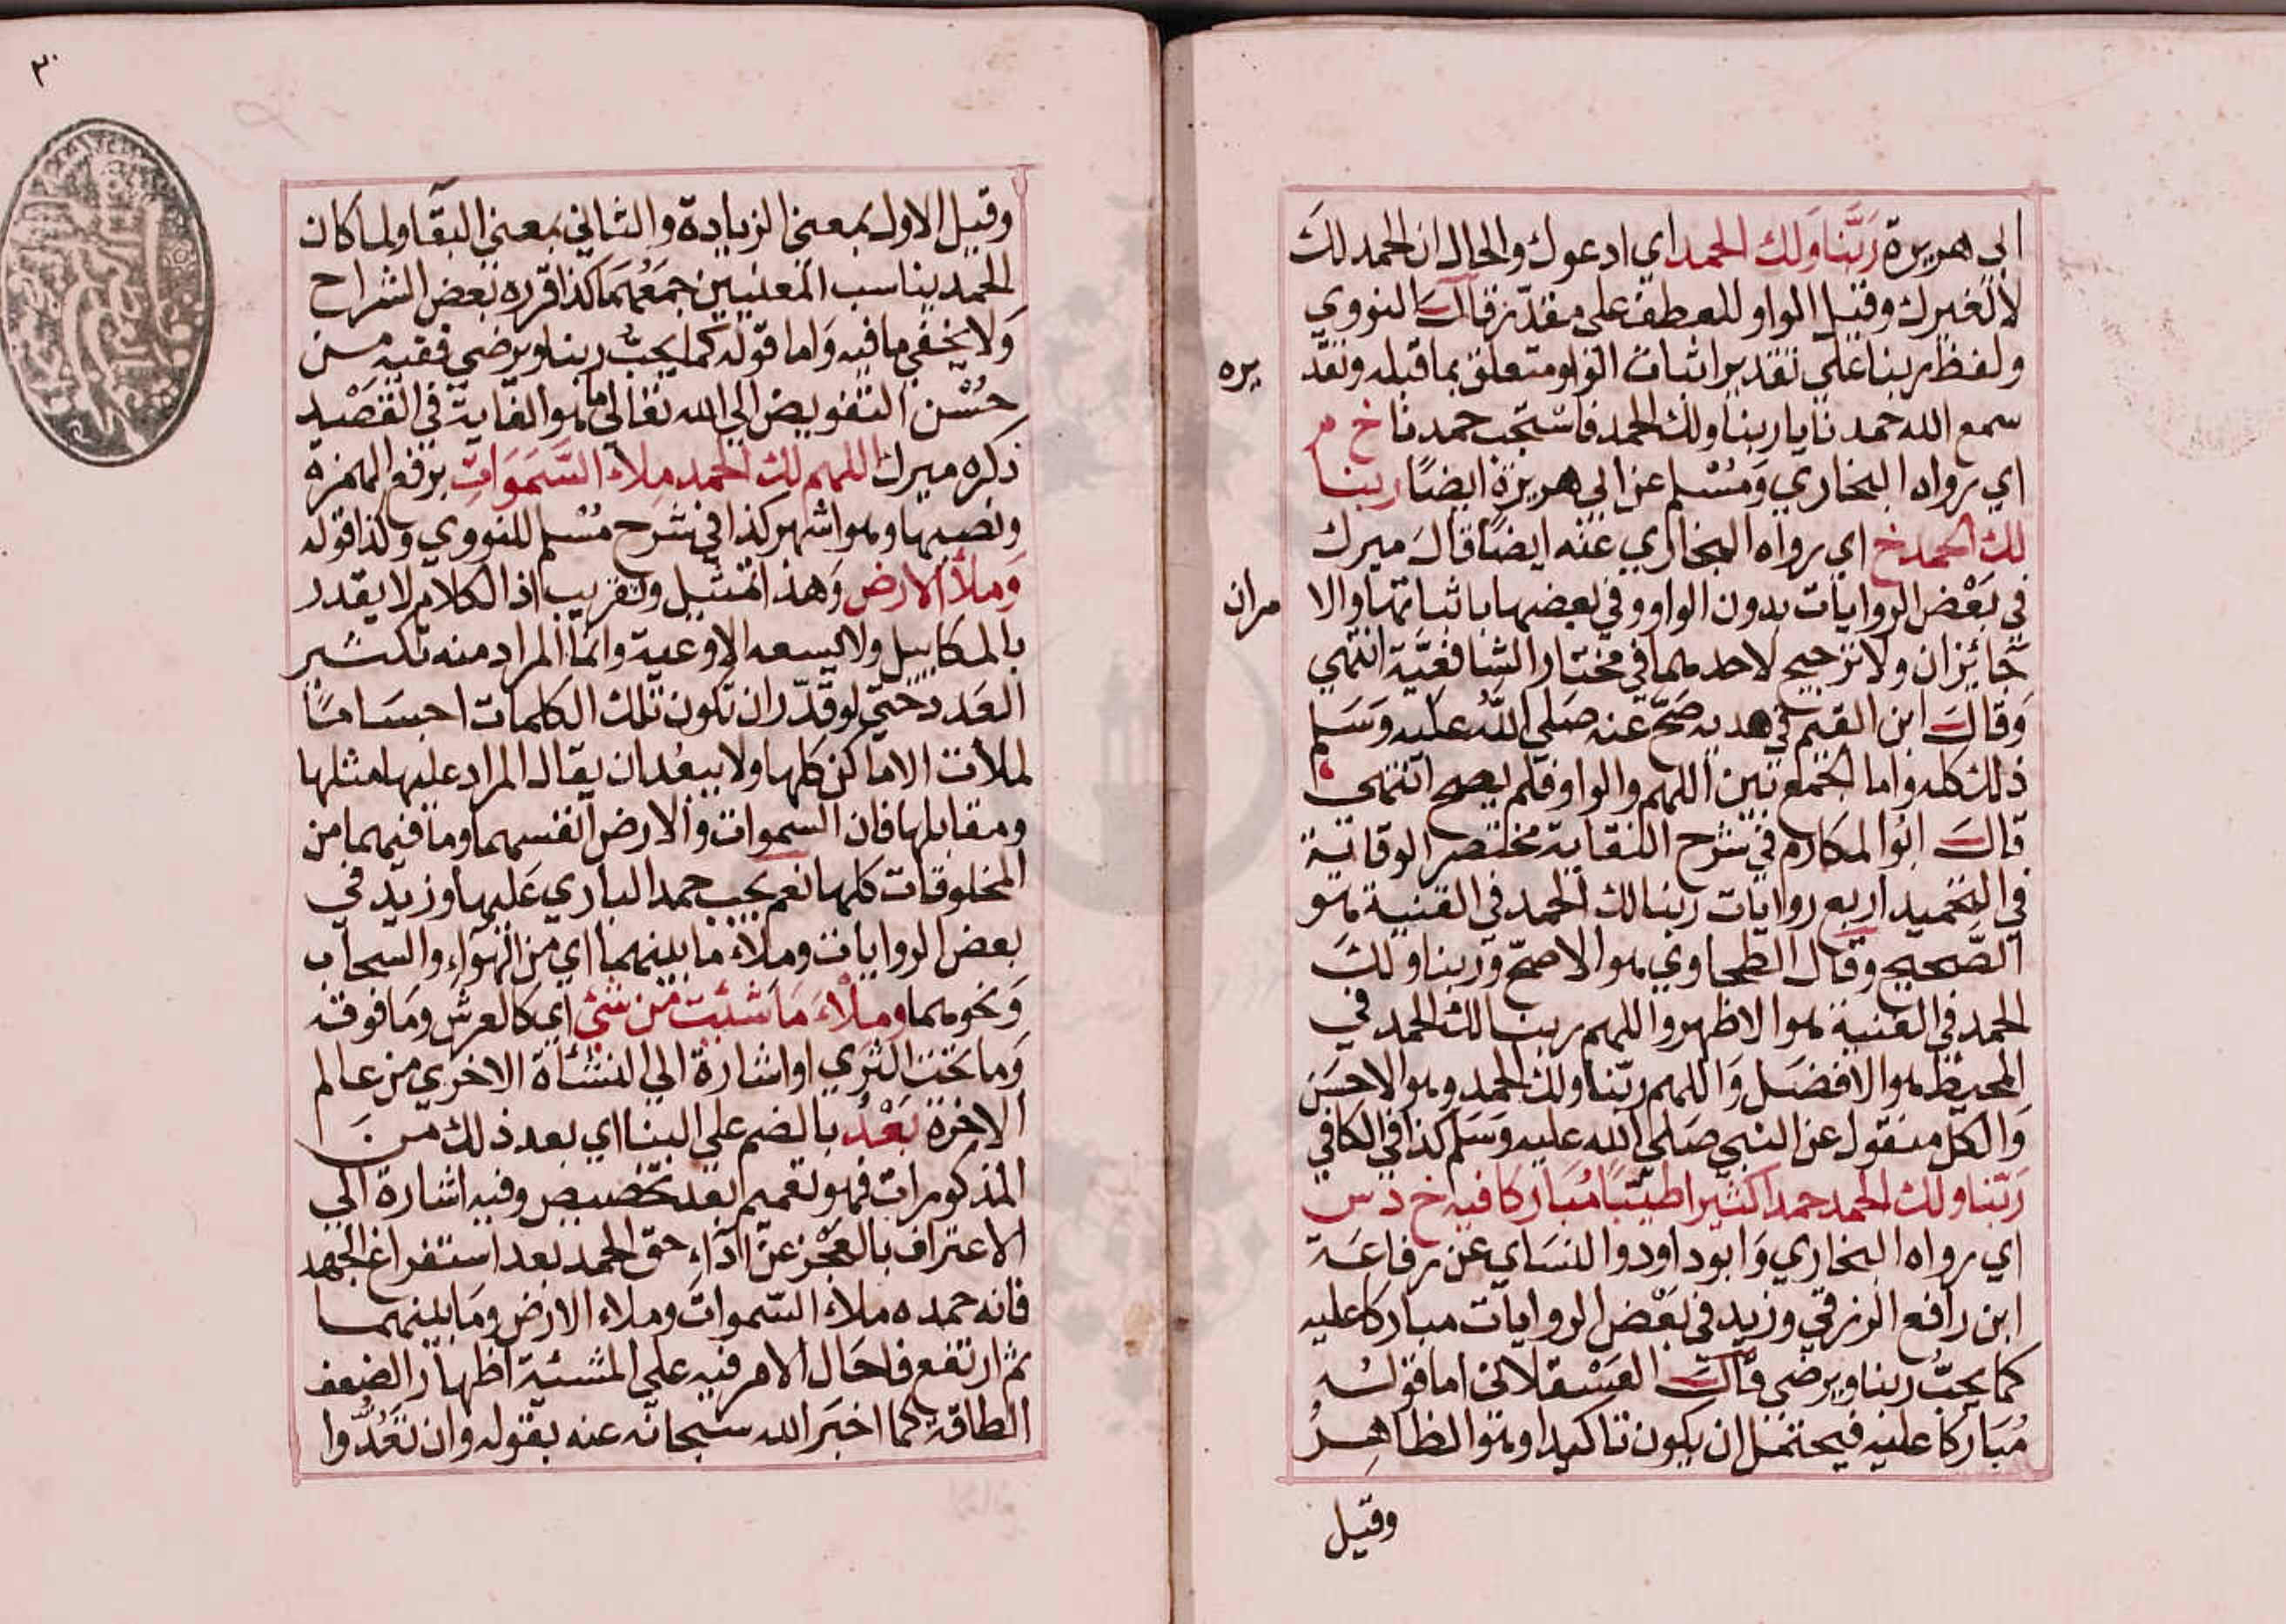 ابي هريرة ربنا ولك الحمد اي ادعوك والحال ان الحمد لك
لا لغيرك وقيل الواو للعطف على مقدر قال النووي
ولفظ ربنا على تقدير اثبات الواو متعلق بما قبله وتقد
يره
سمع الله حمدنا يا ربنا ولك الحمد فاستجب حمدنا خ م
اي رواه البخاري ومسلم عن ابي هريرة ايضا ربنا
لك الحمد خ اي رواه البخاري عنه ايضا قال ميرك
في بعض الروايات بدون الواو وفي بعضها باثباتها والا
مران
جائزان ولا ترجيح لاحدهما في مختار الشافعية انتهي
وقال ابن القيم في هديه صح عنه صلى الله عليه وسلم
ذلك كله واما الجمع بين اللهم والواو فلم يصح انتهى
قال ابو المكارم في شرح النقاية مختصر الوقاية
في التحميد اربع روايات ربنا لك الحمد في القنية هو
الصحيح وقال الطحاوي هو الاصح وربنا ولك
الحمد في القنية هو الاظهر واللهم ربنا لك الحمد في
المحيط هو الافضل واللهم ربنا ولك الحمد وهو الاحسن
والكل منقول عن النبي صلى الله عليه وسلم كذا في الكافي
ربنا ولك الحمد حمدا كثيرا طيبا مباركا فيه خ د س
اي رواه البخاري وابو داود والنساي عن رفاعة
ابن رافع الزرقي وزيد في بعض الروايات مباركا عليه
كما يحب ربنا ويرضى قال العسقلاني اما قوله
مباركا عليه فيحتمل ان يكون تاكيدا وهو الظاهر
وقيل
٣٠
وقيل الاول بمعنى الزيادة والثاني بمعنى البقا ولما كان
الحمد يناسب المعنيين جمعهما كذا قرره بعض الشراح
ولا يخفي ما فيه واما قوله كما يحب ربنا ويرضى ففيه من
حسن التفويض الى الله تعالى ما هو الغاية في القصيد
ذكره ميرك اللهم لك الحمد ملاء السموات برفع الهمزة
ونصبها وهو اشهر كذا في شرح مسلم للنووي وكذا قوله
وملأ الارض وهذا تمثيل وتقريب اذ الكلام لا يقدر
بالمكاييل ولا يسعه الاوعية وانما المراد منه تكثير
العدد حتى لو قدر ان تكون تلك الكلمات اجساما
لملأت الاماكن كلها ولا يبعد ان يقال المراد عليها مثلها
ومقابلها فان السموات والارض انفسهما وما فيهما من
المخلوقات كلها نعم يجب حمد الباري عليها وزيد في
بعض الروايات وملاء ما بينهما اي من الهواء والسحاب
ونحوهما وملاء ما شئت من شئ اي كالعرش وما فوقه
وما تحت الثري او اشارة الي النشأة الاخري من عالم
الاخرة بعد بالضم على البنا اي بعد ذلك من
المذكورات فهو تعميم بعد تخصيص وفيه اشارة الي
الاعتراف بالعجز عن اداء حق الحمد بعد استفراغ الجهد
فانه حمده ملاء السموات وملاء الارض وما بينهما
ثم ارتفع فاحال الامر فيه على المشئية اظهار الضعف
الطاقة كما اخبر الله سبحانه عنه بقوله وان تعدوا